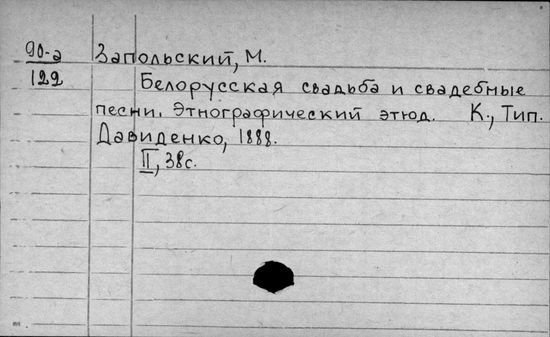 90-а Запольский, М.
122 Белорусская свадьба и свадебные
песни. Этнографический этюд. К., Тип.
Давиденко, 1888.
II, 38с.